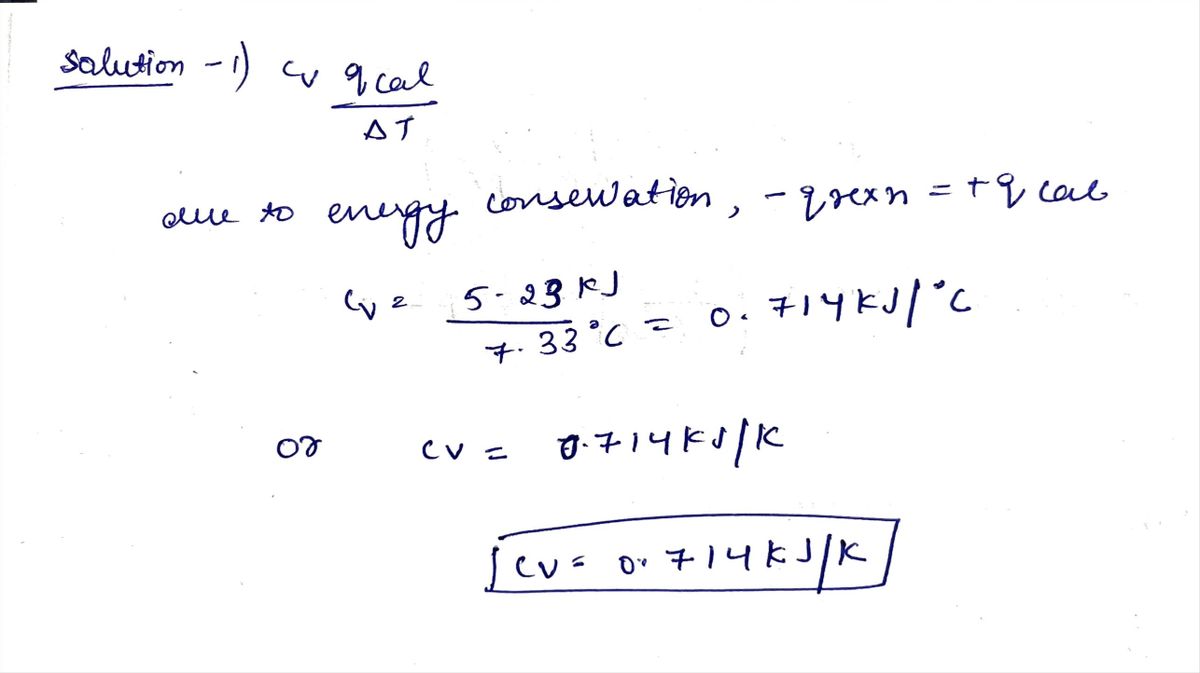 Solution - 1) Cv q cal
ΔT
due to energy conservation, - q rexn = + q cal
Cv = 5.23 KJ
7.33°C = 0.714 KJ/°C
or Cv = 0.714 KJ/K
Cv = 0.714 KJ/K